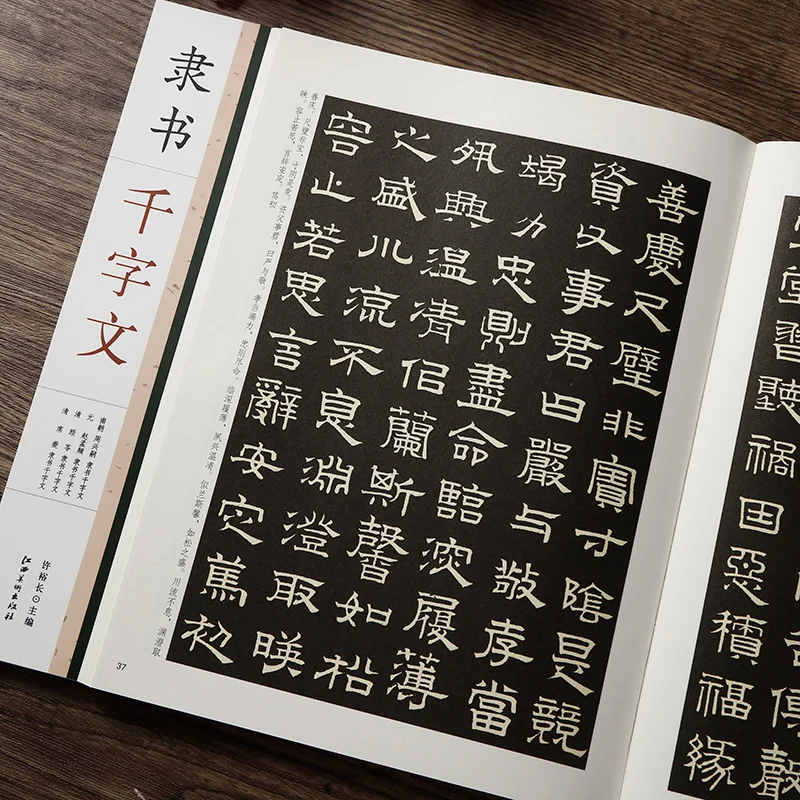 隶书
千字文
南朝 周兴嗣 隶书千字文
元 赵孟頫 隶书千字文
清 顾苓 隶书千字文
许裕长⊙主编
江西美术出版社
善庆。尺璧非宝，寸阴是竞。资父事君，曰严与敬。孝当竭力，忠则尽命。临深履薄，夙兴温凊。似兰斯馨，如松之盛。川流不息，渊澄取
映。容止若思，言辞安定。笃初
37
善慶尺璧非寶寸陰是競
資父事君曰嚴与敬孝當
竭力忠則盡命臨深履薄
夙興温凊佀蘭斯馨如松
之盛川流不息淵澄取暎
容止若思言辭安定篤初
堂習聽禍因惡積福緣